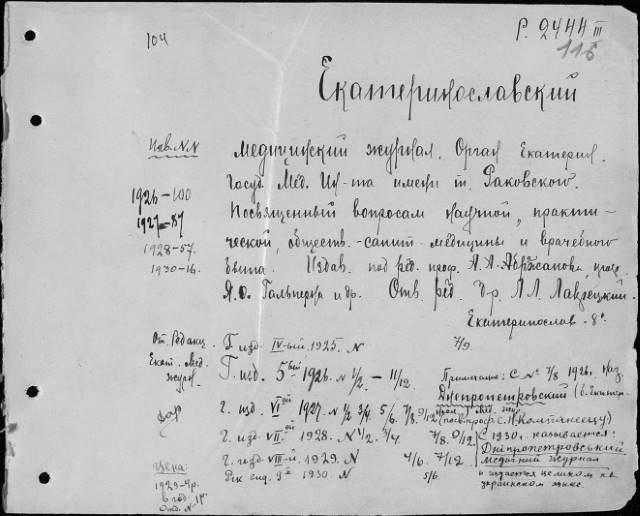 104
Р. 2444 III
116
Екатеринославский
Инв. N.N
медицинский журнал. Орган Екатерин.
Госуд. Мед. Ин-та имени т. Раковского.
1926-100
Посвященный вопросам научной, практи-
1927-87
ческой, обществ.-санит. медицины и врачебного
1928-57.
быта. Издав. под ред. проф. А.А. Абражанова, проф.
1930-16.
Я.О. Гальперна и др. Отв. ред. д-р. Л.Л. Лаврецкий.
Екатеринослав - 8°
От Редакц.
Г. изд. IV-ый. 1925. N 7/9.
Екат. Мед.
журн.
Г. изд. 5-ый 1926. N 1/2 - 11/12.
Примечание: С N 7/8 1926 г. наз.
Днепропетровский (б. Екатер-
дар
Г. изд. VI-ой 1927. N 1/2 3/4 5/6. 7/8. 9/12
Г. изд. VII-ой 1928. N 1/2. 3/4. 7/8. 9/12
С 1930 г. называется:
Днiпропетровський
медичний журнал
Цена:
Г. изд. VIII-й. 1929. N 4/6. 7/12
1930. N 5/6.
и издается целиком на
украинском языке.
1929-4р.
в год. 1р.
Отд. N.